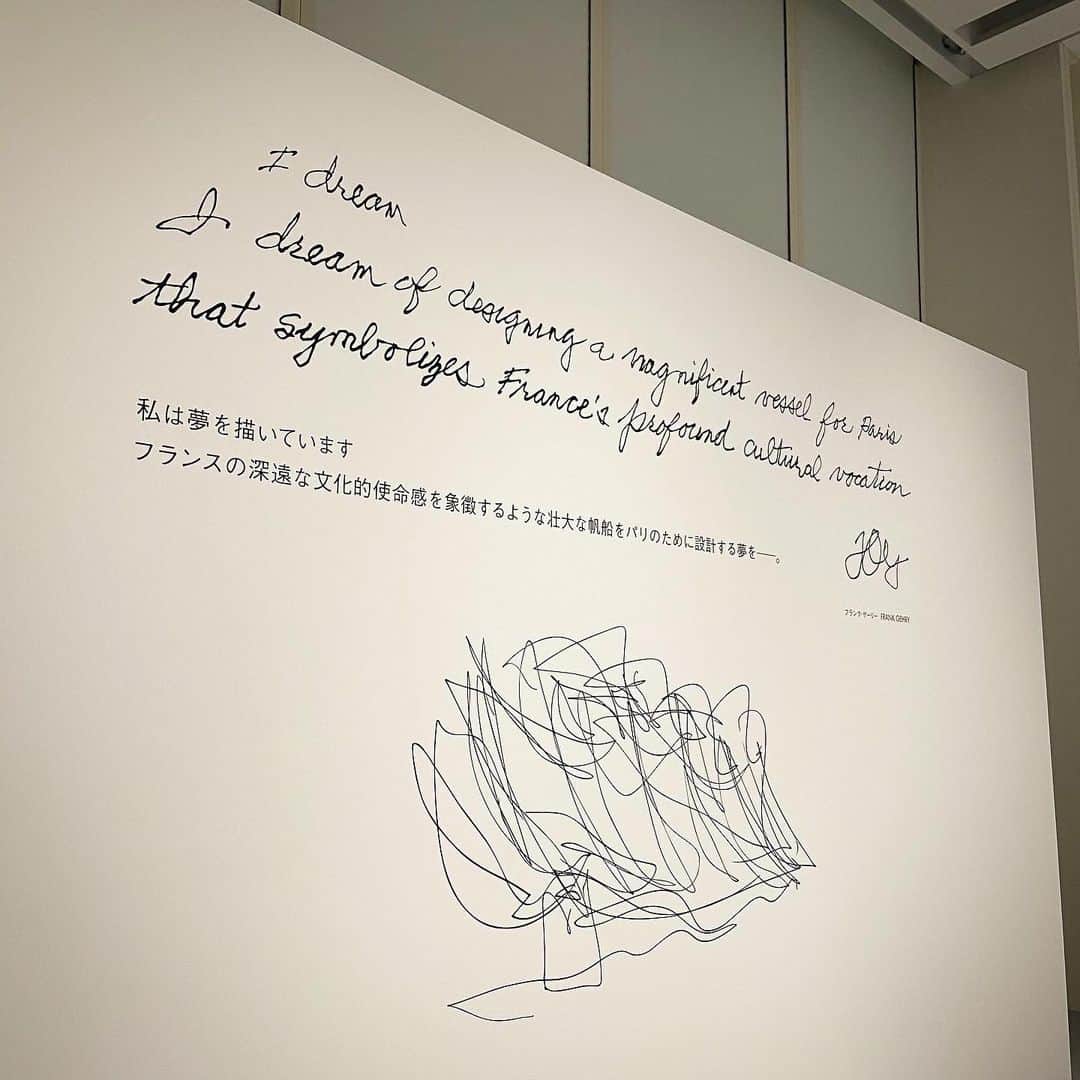 I dream
I dream of designing a magnificent vessel for Paris
that symbolizes France's profound cultural vocation
私は夢を描いています
フランスの深遠な文化的使命感を象徴するような壮大な帆船をパリのために設計する夢を──。
フランク・ゲーリー FRANK GEHRY